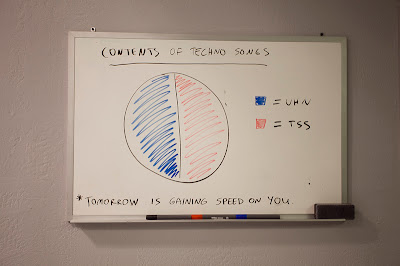 CONTENTS OF TECHNO SONGS
= UHN
= TSS
*TOMORROW IS GAINING SPEED ON YOU.